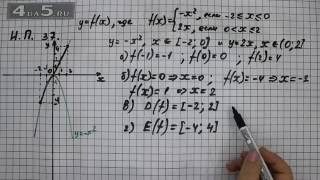 4 ДЛЯ 5
И.П. 37.
y=f(x), где f(x)= { -x², если -2≤x≤0
2x, если 0<x≤2
y=-x², x∈[-2; 0] и y=2x, x∈(0; 2]
а) f(-1)=-1, f(0)=0, f(2)=4
б) f(x)=0 ⇒ x=0; f(x)=-4 ⇒ x=-2
f(x)=1 ⇒ x=
в) D(f)=[-2; 2]
г) E(f)=[-4; 4]
y=-x²